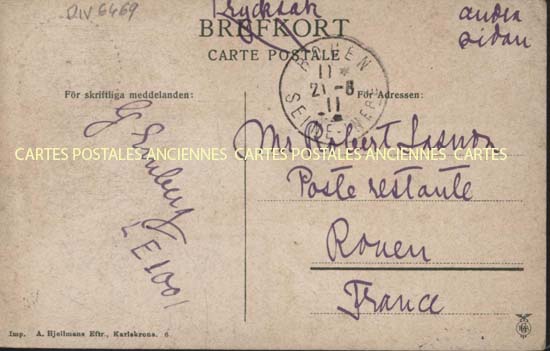 DIV 6469
Trycksak
andra
sidan
BREFKORT
CARTE POSTALE
ROUEN
11 *
21 -8
11
SEINE INFRE
För skriftliga meddelanden:
För Adressen:
G
LE1001
Mr Robert
CARTES POSTALES ANCIENNES CARTES POSTALES ANCIENNES CARTES
Poste restante
Rouen
France
Imp. A. Hjellmans Eftr., Karlskrona. 6